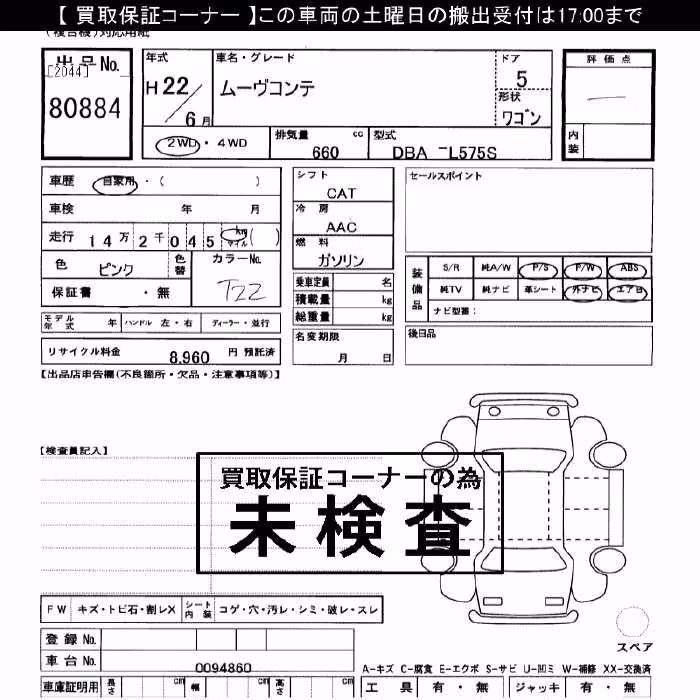 【 買取保証コーナー 】この車両の土曜日の搬出受付は17:00まで
(複合機)対応用紙
出品No.
[2044]
80884
年式
H22/6月
車名・グレード
ムーヴコンテ
ドア
5
形状
ワゴン
評価点
内装
2WD・4WD
排気量 cc
660
型式
DBA -L575S
車歴 自家用・( )
車検 年 月
走行 14万2千045 km マイル ( )
色 ピンク 色替
カラーNo.
T22
保証書 ・無
シフト
CAT
冷房
AAC
燃料
ガソリン
乗車定員 名
積載量 kg
総重量 kg
セールスポイント
装備品
S/R 純A/W P/S P/W ABS
純TV 純ナビ 革シート 外ナビ エアB
ナビ型番:
モデル年式 年 ハンドル 左・右 ディーラー・並行
名変期限
月 日
後日品
リサイクル料金 8,960 円 預託済
【出品店申告欄(不良箇所・欠品・注意事項等)】
【検査員記入】
買取保証コーナーの為
未検査
FW キズ・トビ石・割レX シート内装 コゲ・穴・汚レ・シミ・破レ・スレ
スペア
登録No.
車台No. 0094860
A-キズ C-腐食 E-エクボ S-サビ U-凹ミ W-補修 XX-交換済
車庫証明用 長さ cm 幅 cm 高さ cm 工具 有・無 ジャッキ 有・無